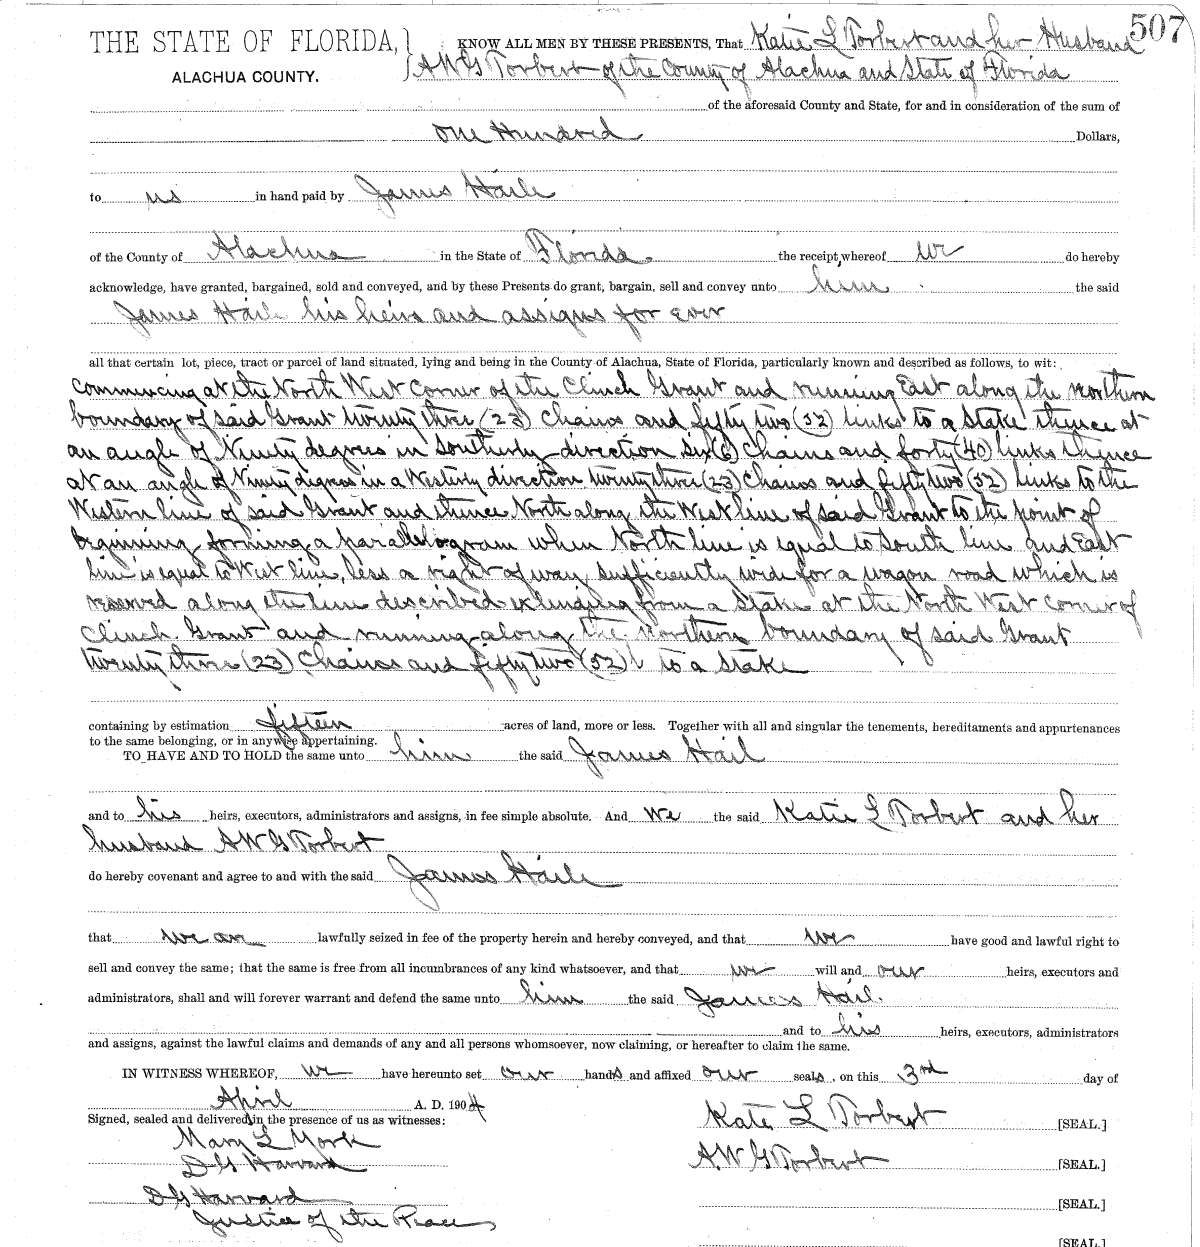 507
THE STATE OF FLORIDA,} KNOW ALL MEN BY THESE PRESENTS, That Katie L Torbert and her Husband
ALACHUA COUNTY. AWG Torbert of the County of Alachua and State of Florida
of the aforesaid County and State, for and in consideration of the sum of
One Hundred Dollars,
to us in hand paid by James Haile
of the County of Alachua in the State of Florida the receipt whereof we do hereby
acknowledge, have granted, bargained, sold and conveyed, and by these Presents do grant, bargain, sell and convey unto him the said
James Haile his heirs and assigns for ever
all that certain lot, piece, tract or parcel of land situated, lying and being in the County of Alachua, State of Florida, particularly known and described as follows, to wit:
Commencing at the North West Corner of the Clinch Grant and running East along the northern
boundary of said Grant twenty three (23) Chains and fifty two (52) links to a Stake thence at
an angle of Ninety degrees in Southerly direction six (6) Chains and forty (40) links thence
at an angle of Ninety degrees in a Westerly direction twenty three (23) Chains and fifty two (52) links to the
Western line of said Grant and thence North along the West line of said Grant to the point of
beginning forming a parallelogram when North line is equal to South line and East
line is equal to West line, less a right of way sufficiently wide for a wagon road which is
reserved along the line described extending from a Stake at the North West Corner of
Clinch Grant and running along the northern boundary of said Grant
twenty three (23) Chains and fifty two (52) l to a Stake
containing by estimation fifteen acres of land, more or less. Together with all and singular the tenements, hereditaments and appurtenances
to the same belonging, or in anywise appertaining.
TO HAVE AND TO HOLD the same unto him the said James Hail
and to his heirs, executors, administrators and assigns, in fee simple absolute. And We the said Katie L Torbert and her
husband AWG Torbert
do hereby covenant and agree to and with the said James Haile
that we are lawfully seized in fee of the property herein and hereby conveyed, and that we have good and lawful right to
sell and convey the same; that the same is free from all incumbrances of any kind whatsoever, and that we will and our heirs, executors and
administrators, shall and will forever warrant and defend the same unto him the said James Hail.
and to his heirs, executors, administrators
and assigns, against the lawful claims and demands of any and all persons whomsoever, now claiming, or hereafter to claim the same.
IN WITNESS WHEREOF, we have hereunto set our hands and affixed our seals, on this 3rd day of
April A. D. 1904
Signed, sealed and delivered in the presence of us as witnesses: Kate L Torbert [SEAL.]
Mary L York
D G Harvard AWG Torbert [SEAL.]
D G Harvard [SEAL.]
Justice of the Peace
[SEAL.]